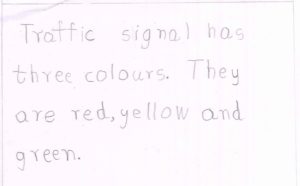 Traffic signal has
three colours. They
are red, yellow and
green.